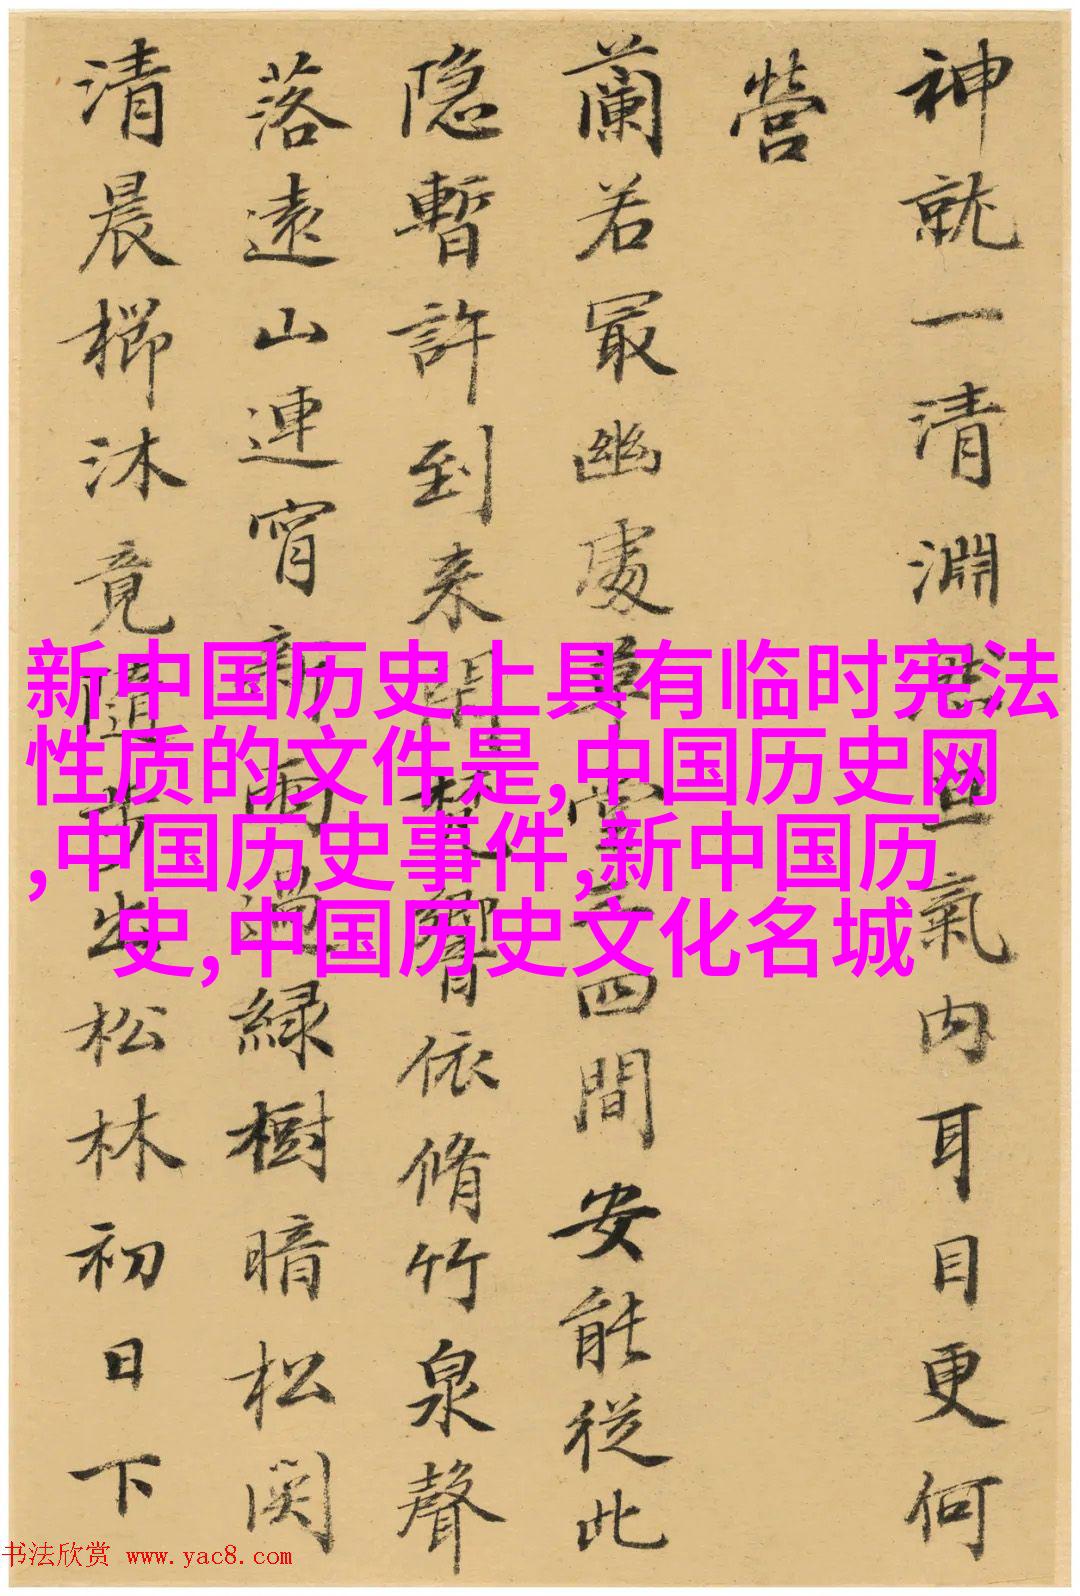 神就一清淵思氣內耳目更何
營
蘭若冣幽處草堂三四間安能從此
隐暫許到来閒梵響依脩竹泉聲
落遠山連宵新雨過緑樹暗松関
清晨櫛沐竟隨步出松林初日下
新中国历史上具有临时宪法
性质的文件是,中国历史网
,中国历史事件,新中国历
史,中国历史文化名城
书法欣赏 www.yac8.com